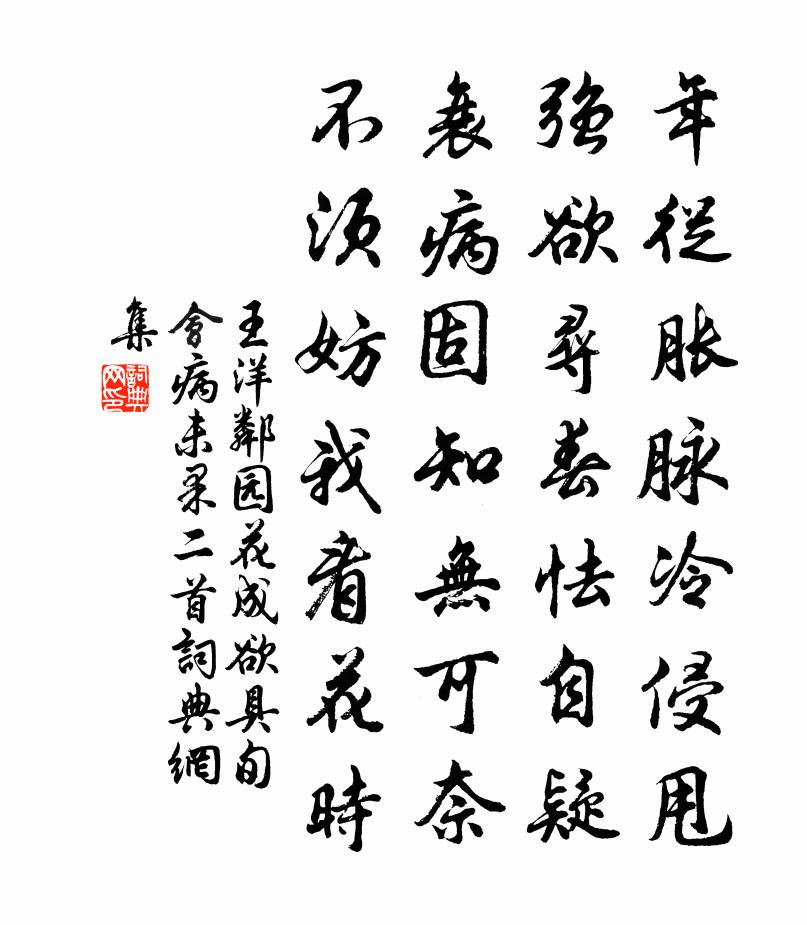 年從脹脉冷侵甩
強欲尋春怯自疑
衰病固知無可奈
不須妨我看花時
王洋鄰园花成欲具旬
會病未果二首詞典網
集
詞典网印